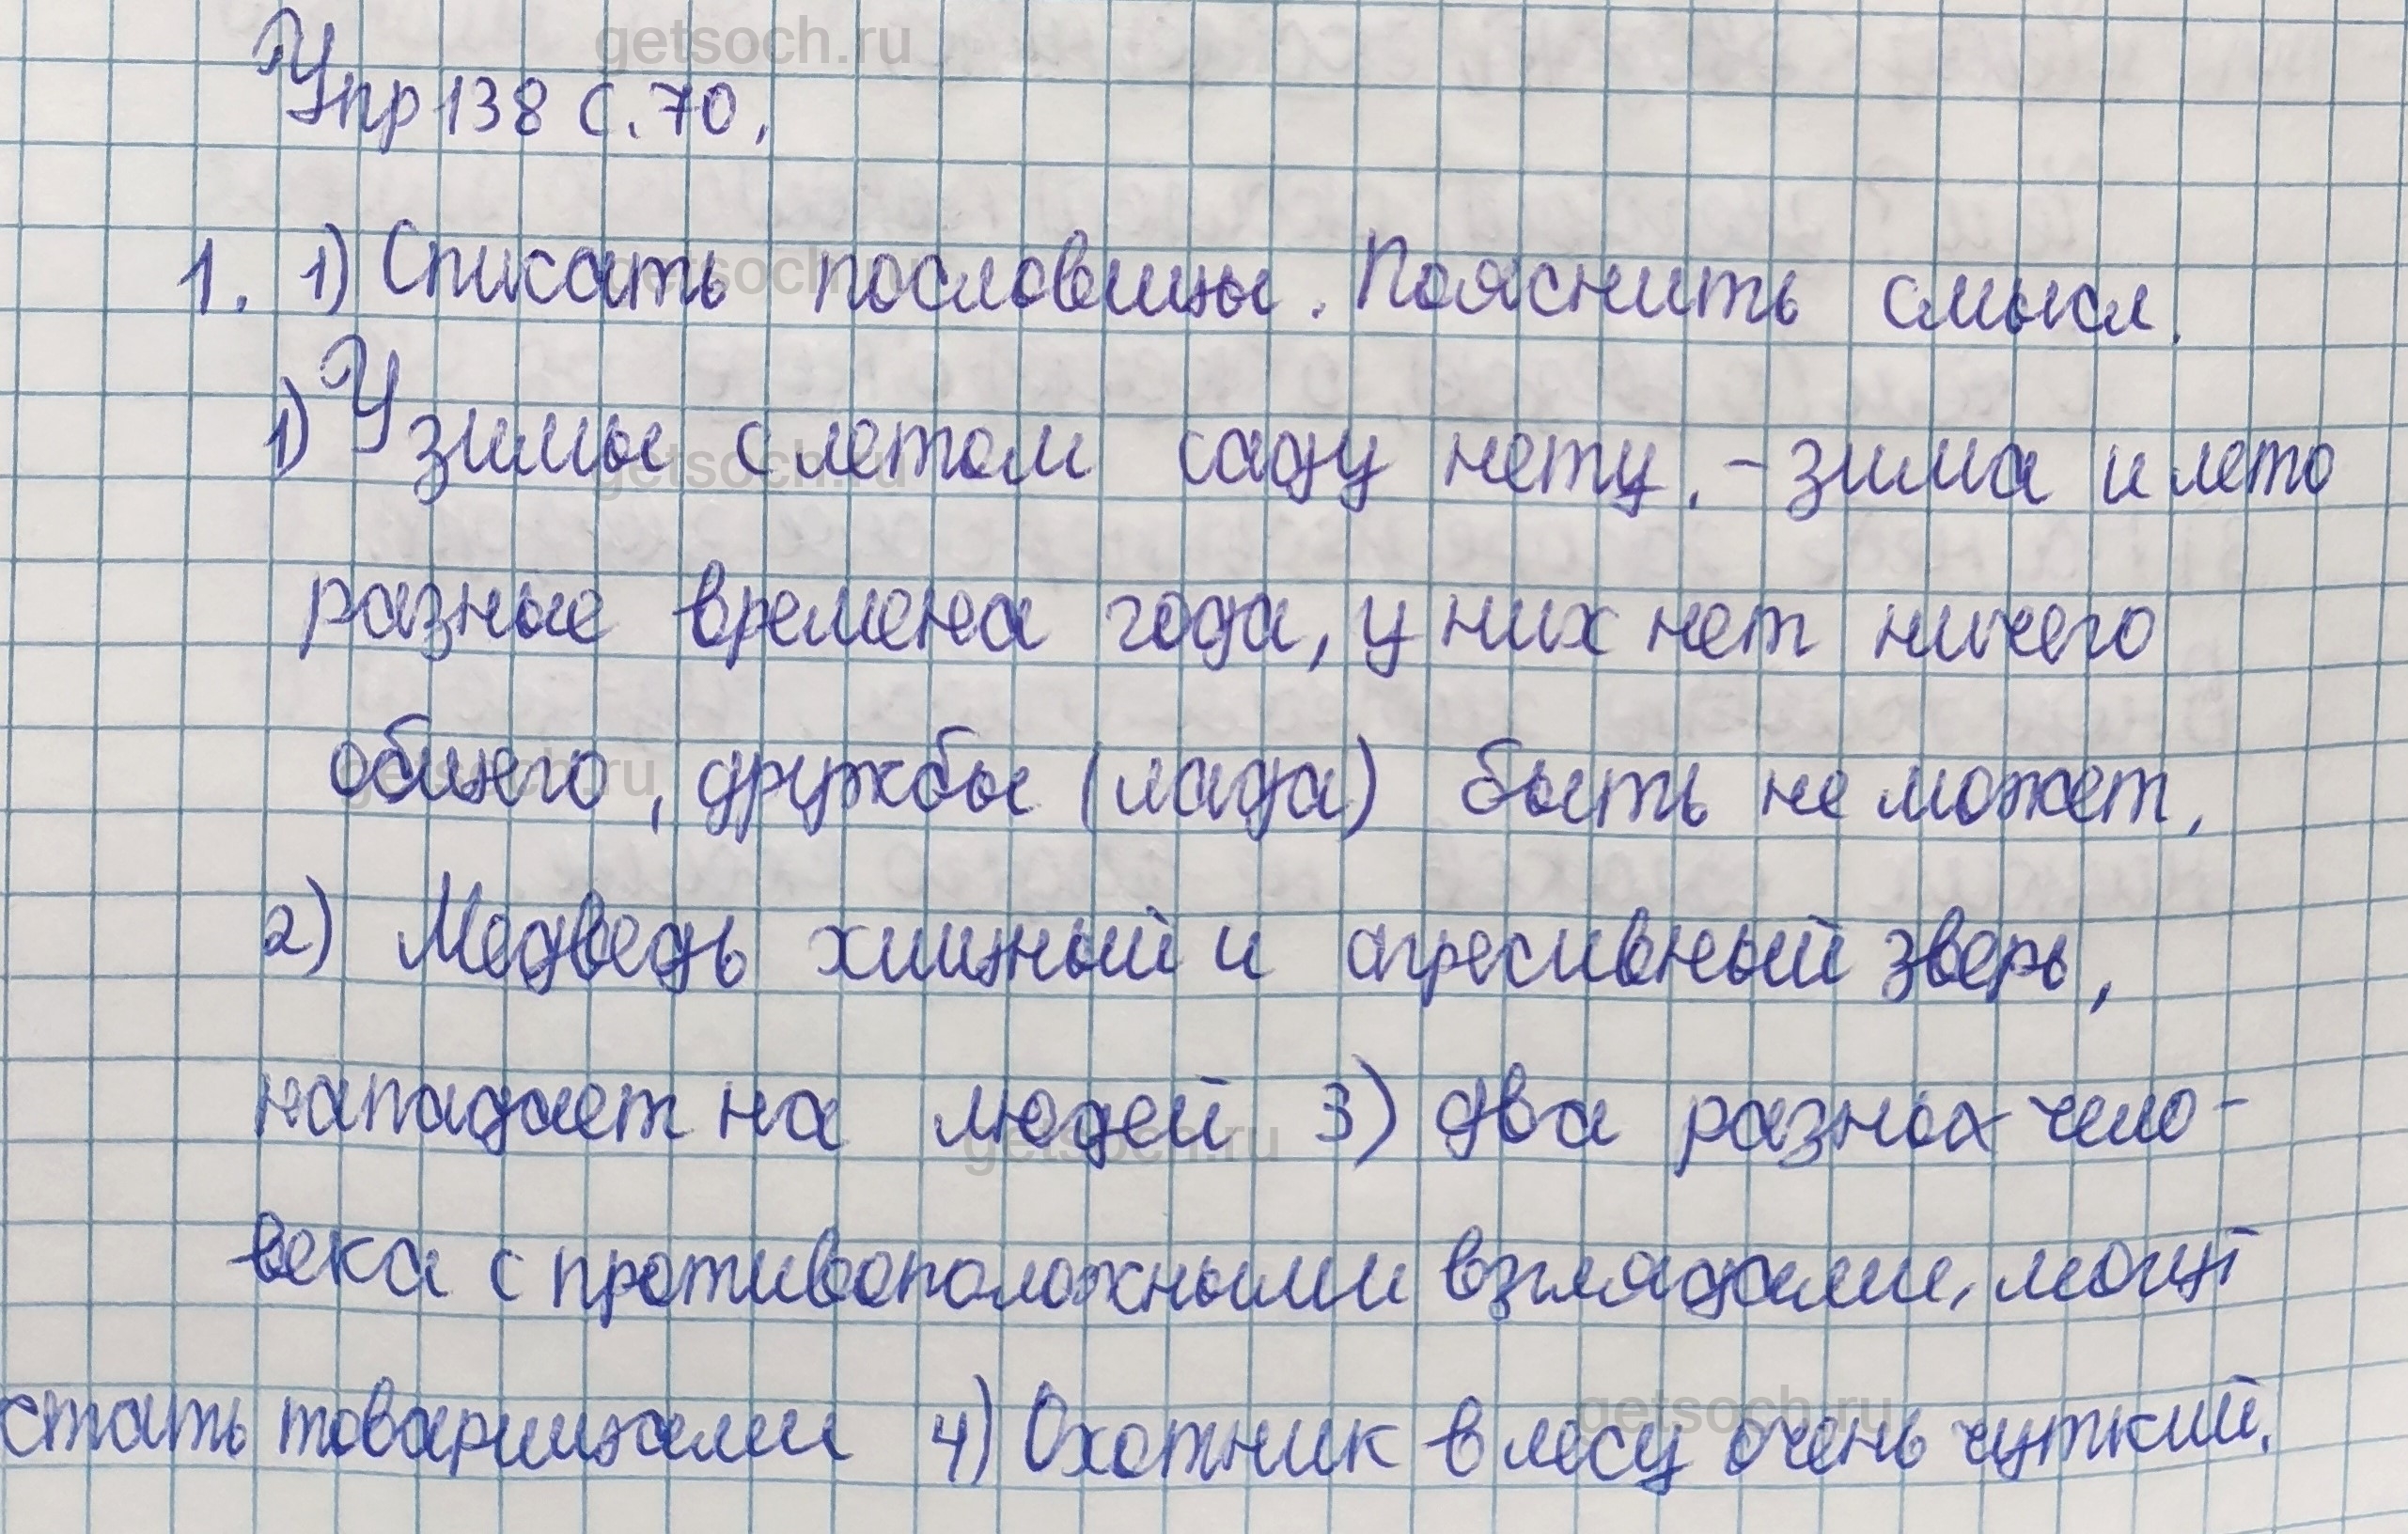 Упр 138 с. 70.
1. 1) Списать пословицы. Пояснить смысл.
1) У зимы с летом саду нету. - зима и лето
разные времена года, у них нет ничего
общего, дружбы (лада) быть не может.
2) Медведь хищный и агресивный зверь,
нападает на людей 3) два разных чело-
века с противоположными взглядами, могут
стать товарищами 4) Охотник в лесу очень чуткий.
getsoch.ru
getsoch.ru
getsoch.ru
getsoch.ru
getsoch.ru
getsoch.ru